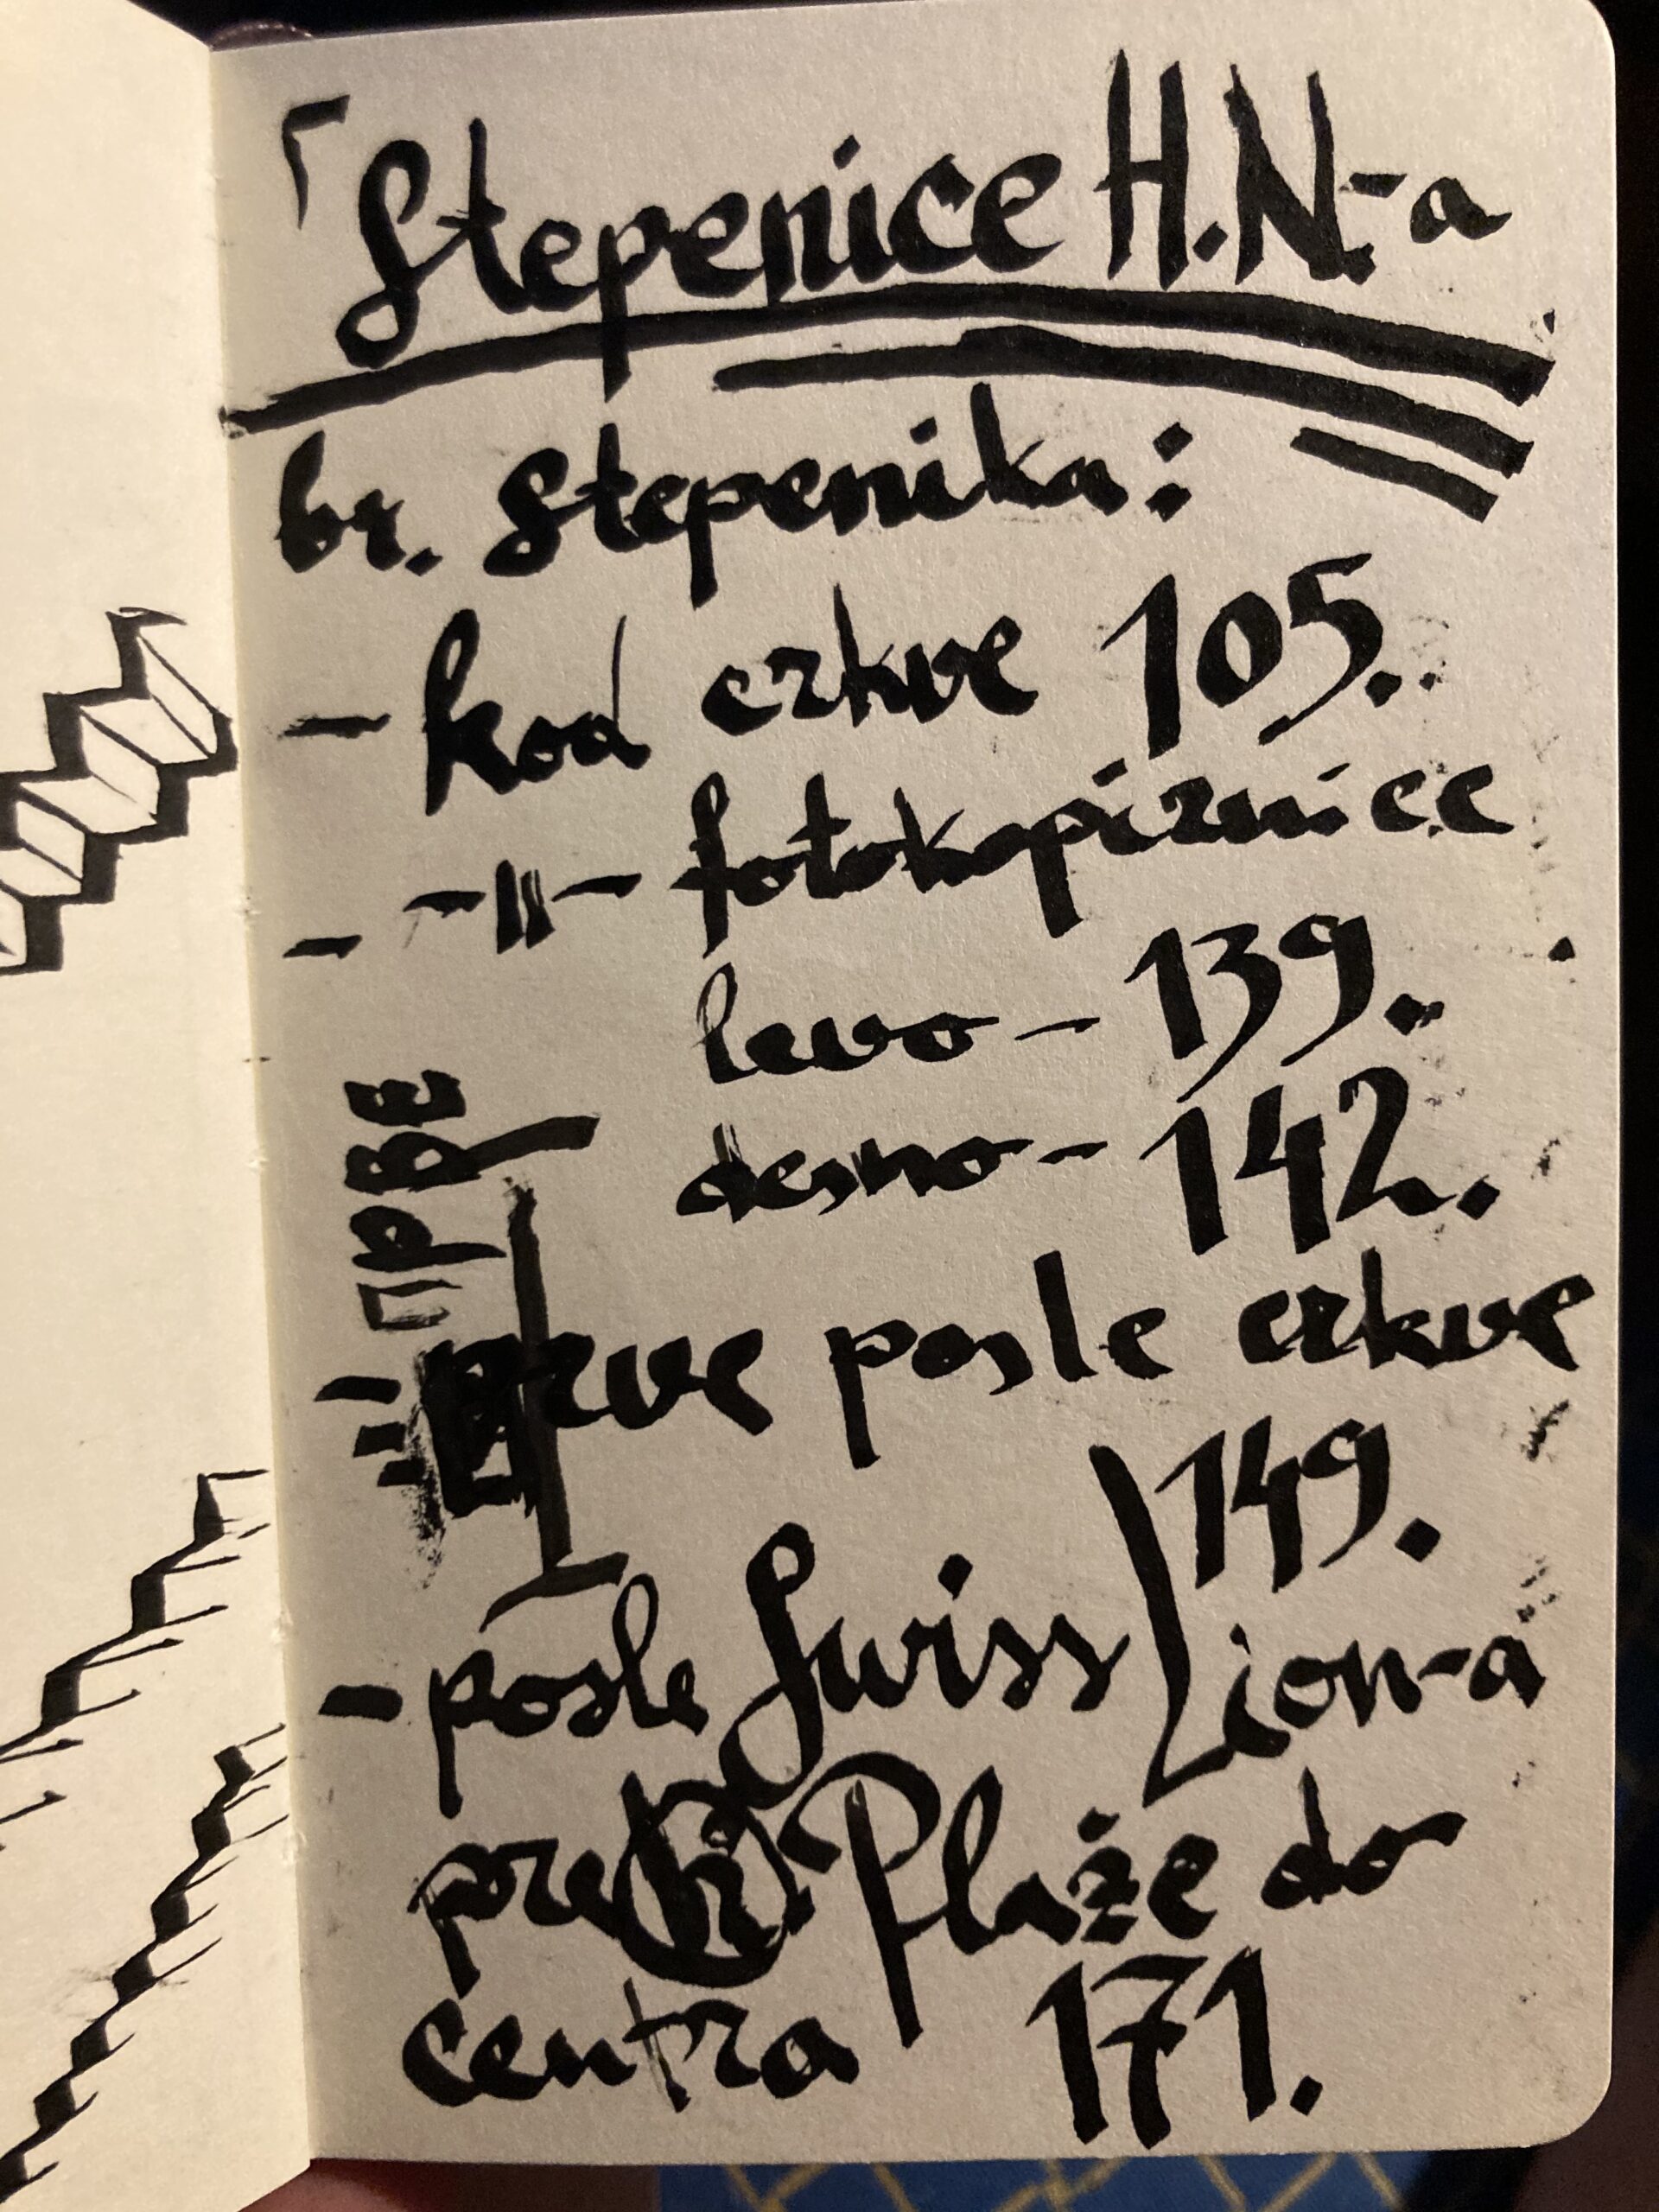 Stepenice H.N.-a
br. stepenika:
- kod crkve 105.
- -||- fotokopirnice
levo - 139.
desno - 142.
ПРВЕ
prve posle crkve
149.
- posle Swiss Lion-a
preko Plaže do
centra 171.